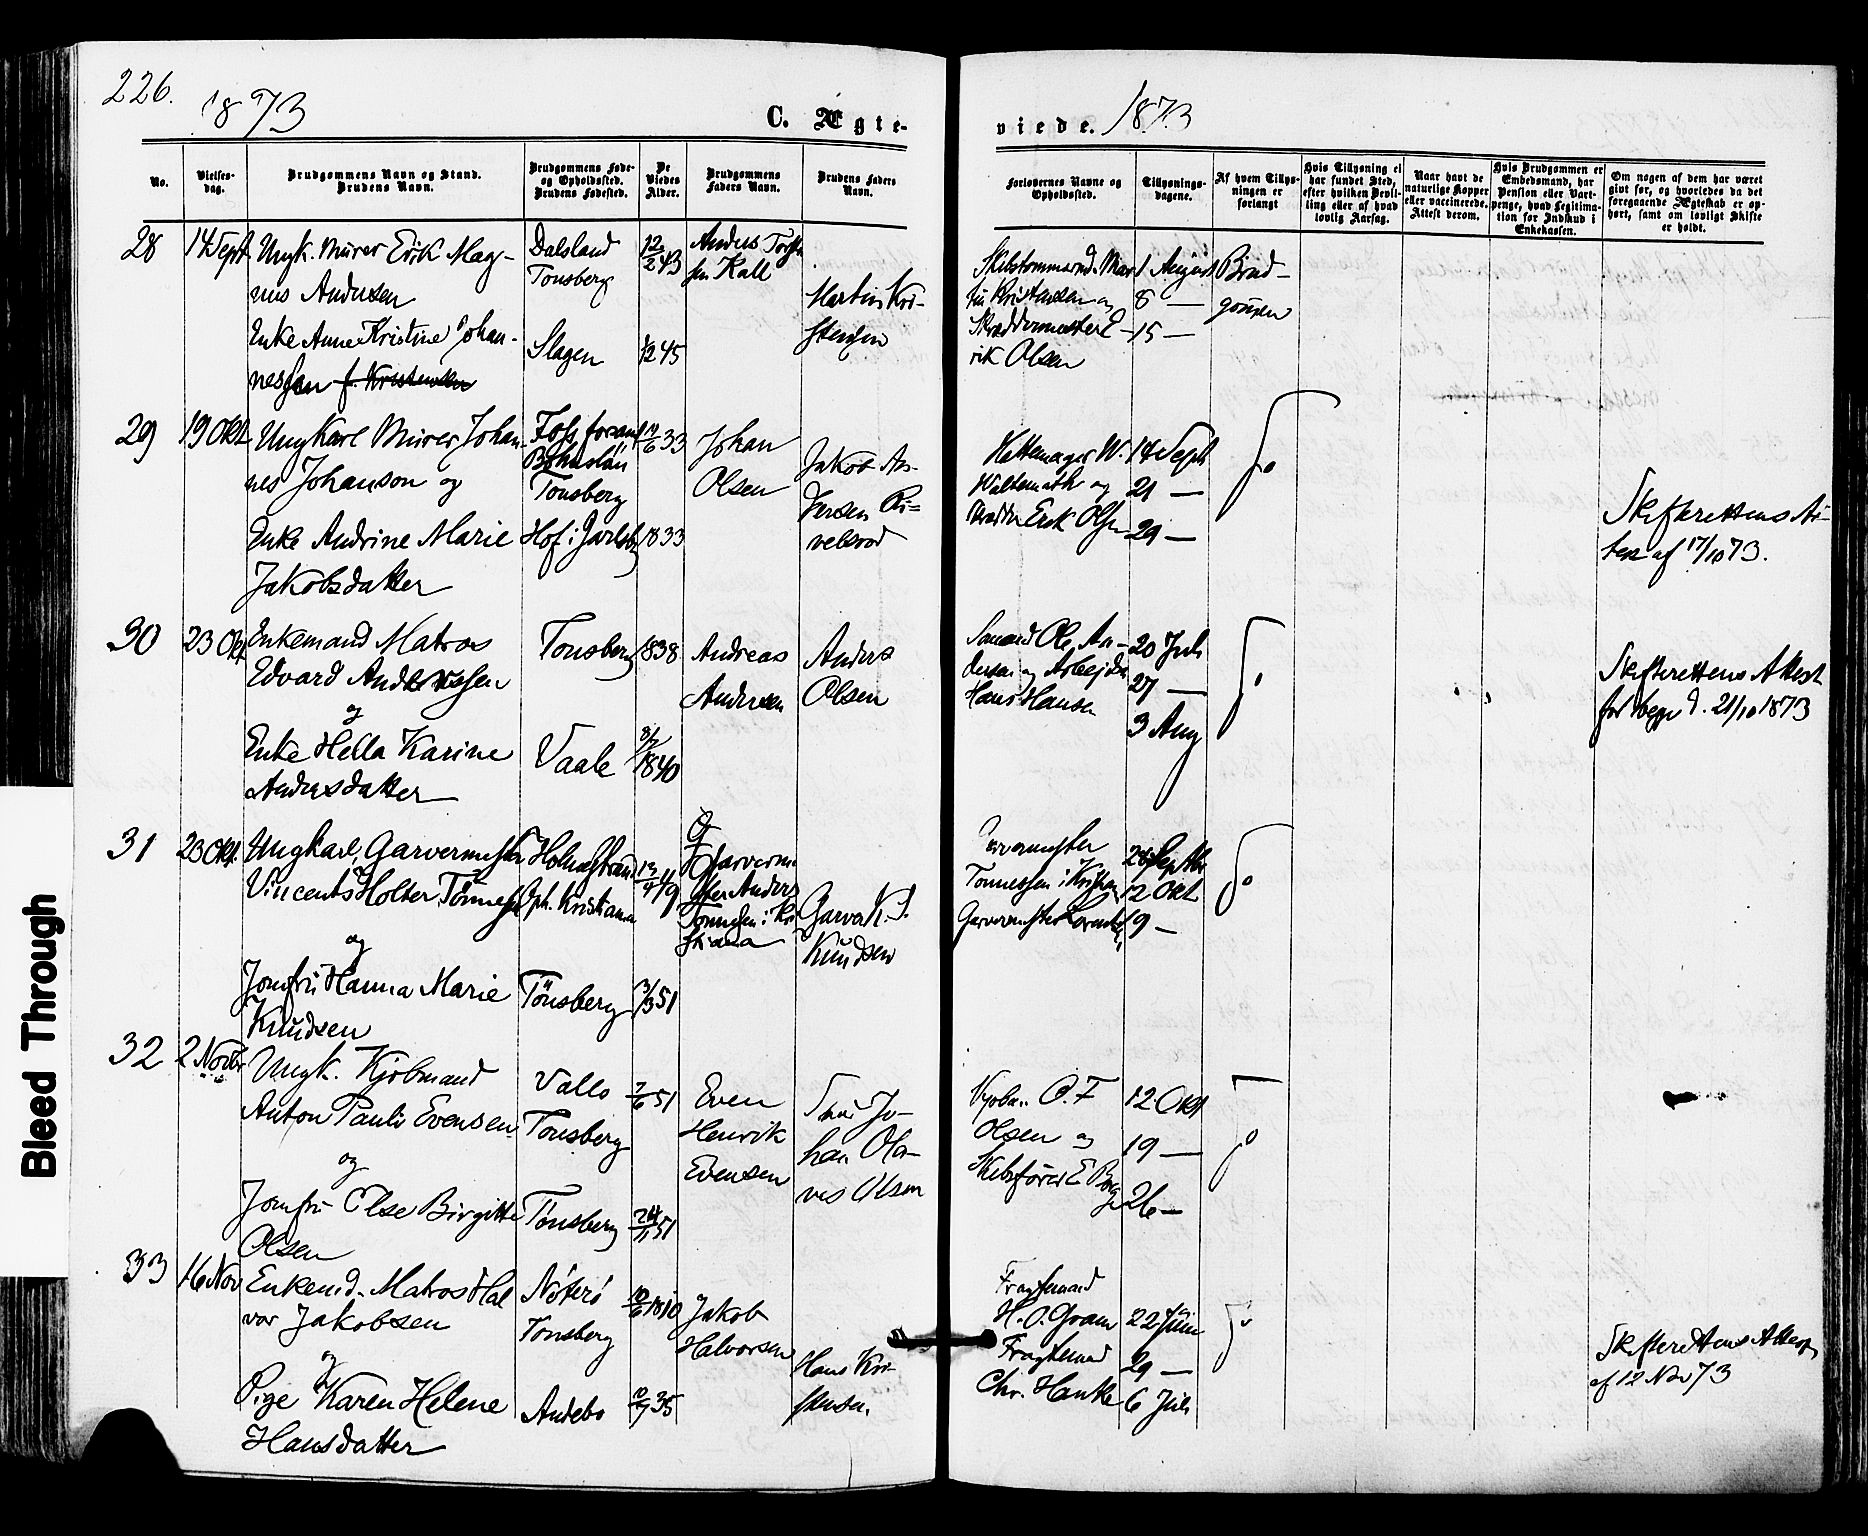 226.
1873
C. Ægte-
viede. 1873
No.
Vielses-
dag.
Brudgommens Navn og Stand.
Brudens Navn.
Brudgommens Føde-
og Opholdssted.
Brudens Fødested.
De
Viedes
Alder.
Brudgommens
Faders Navn.
Brudens Faders
Navn.
Forlovernes Navne og
Opholdssted.
Tillysnings-
dagene.
Af hvem Tillys-
ningen er
forlangt
Hvis Tillysning ei
har fundet Sted,
efter hvilken Bevil-
ling eller af hvad
lovlig Aarsag.
Naar havt de
naturlige Kopper
eller vaccinerede.
Attest derom.
Hvis Brudgommen er
Embedsmand, har
Pension eller Vart-
penge, hvad Legitima-
tion for Indskud i
Enkekassen.
Om nogen af dem har været
gift før, og hvorledes da det
foregaaende Ægteskab er op-
hørt, samt om lovligt Skifte
er holdt.
28
14 Sept
Ungk. Murer Erik Mag-
nus Andersen
Enke Anne Kristine Johan-
nessen f. Kristensen
Dalsland
Tonsberg
Slagen
12/2 43
45
Anders
Kall
Martin Kri-
stensen
Skibstommermd. Mar-
tin Kristensen og
Skræddermester E-
rik Olsen
1 August
8 —
15 —
Brud-
gommen
29
19 Okt
Ungkarl Murer Johan-
nes Johanson og
Enke Andrine Marie
Jakobsdatter
Tonsberg
Hof i Jarlsb
33
1833
Johan
Olsen
Jakob An-
dersen
Hattemager W.
Waltemath og
Erik Olsen
14 Sept
21 —
29 —
Skifterettens At-
test af 17/10 73.
30
23 Okt
Enkemand Matros
Edvard Anderssen
og
Enke Hella Karine
Andersdatter
Tonsberg
Vaale
1838
8/7
1840
Andreas
Andersen
Anders
Olsen
Ole An-
dersen og Arbejder
Hans Hansen
20 Juli
27 —
3 Aug
Skifterettens Attest
d. 21/10 1873
31
23 Okt.
Ungkarl, Garvermester
Vincents Holter Tønnesen
og
Jomfru Hanna Marie
Knudsen
Holmestrand
Oph. Kristiania
Tönsberg
49
51
Garverme-
ster Anders
Tønnesen i Kri-
stiania
Garver K. J.
Knudsen
Garvermester
Tonnessen i Kristian
Garvermester
28 Septbr
12 Okt
19 —
32
2 Novbr
Ungk. Kjøbmand
Anton Pauli Evensen
og
Jomfru Else Birgitte
Olsen
Vallo
Tonsberg
Tönsberg
7/6 51
24/11 51
Even
Henrik
Evensen
Jo-
han Ola-
ves Olsen
Kjøbm. O. F
Olsen og
Skibsfører E Borg
12 Okt
19 —
26 —
33
16 Nov
Enkemd. Matros Hal
vor Jakobsen
og
Pige Karen Helene
Hansdatter
Nøterö
Tonsberg
Andebo
10/6 1810
10/7 35
Jakob
Halvorsen
Hans Kri-
stensen.
Fragtemand
H. O. Gram
Fragtemand
Chr. Hanke
22 Juni
29 —
6 Juli
Skifterettens Attest
af 12 Nov 73
Bleed Through